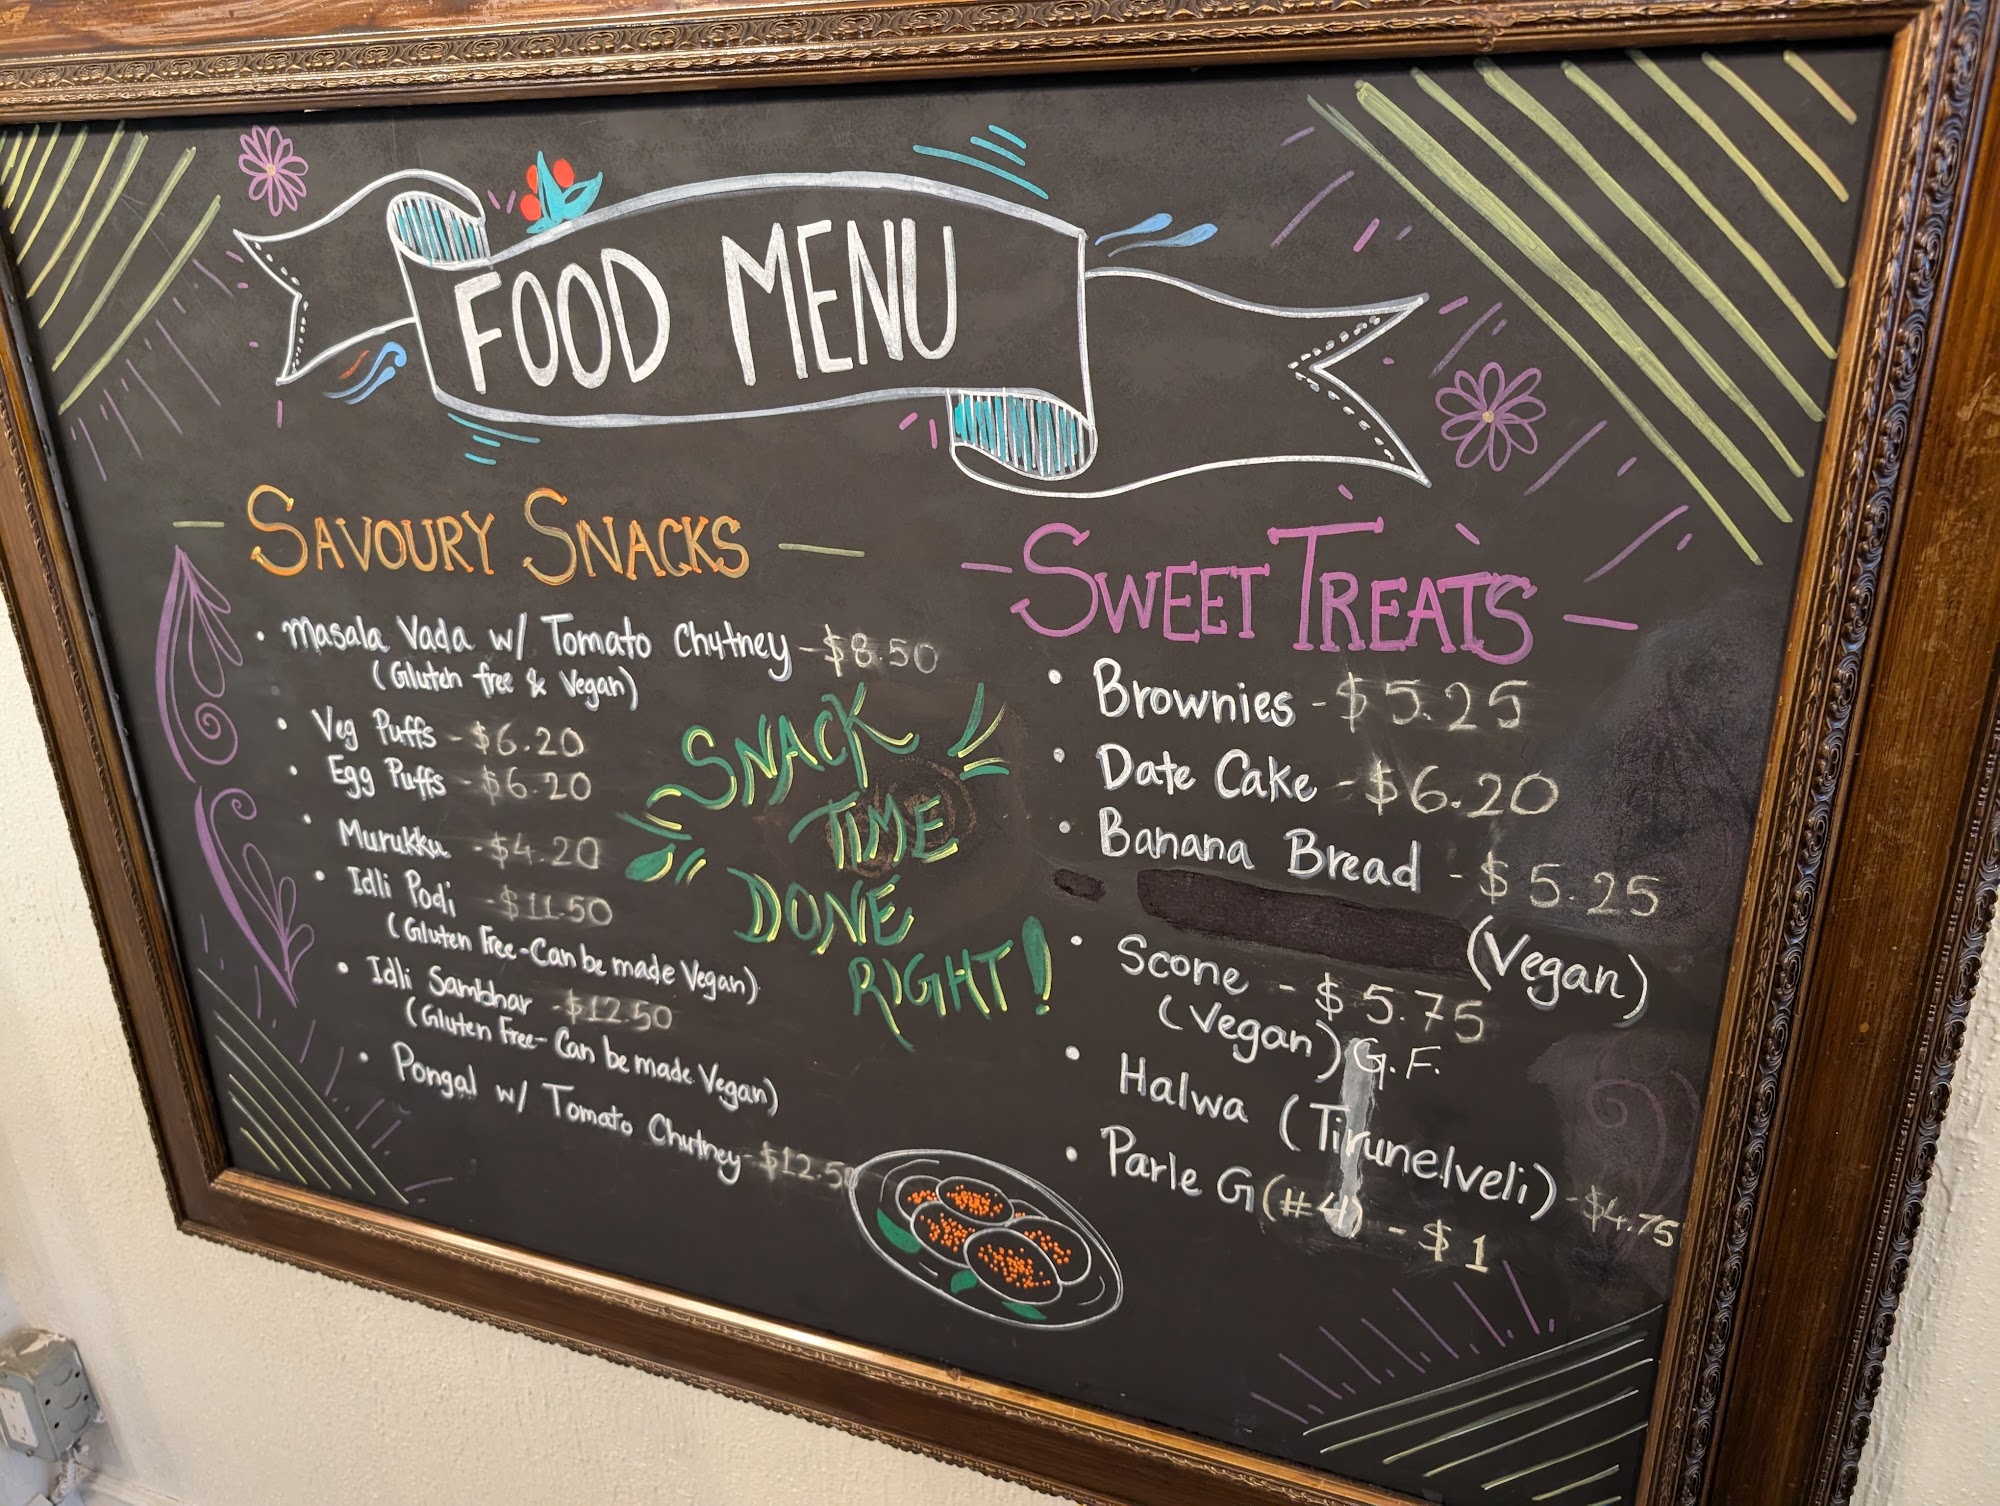 FOOD MENU
SAVOURY SNACKS
• Masala Vada w/ Tomato Chutney - $8.50
(Gluten free & Vegan)
• Veg Puffs - $6.20
• Egg Puffs - $6.20
• Murukku - $4.20
• Idli Podi - $11.50
(Gluten Free - Can be made Vegan)
• Idli Sambhar - $12.50
(Gluten Free - Can be made Vegan)
• Pongal w/ Tomato Chutney - $12.50
SNACK
TIME
DONE
RIGHT!
SWEET TREATS
• Brownies - $5.25
• Date Cake - $6.20
• Banana Bread - $5.25
(Vegan)
• Scone - $5.75
(Vegan) G.F.
• Halwa (Tirunelveli) - $4.75
• Parle G (#4) - $1